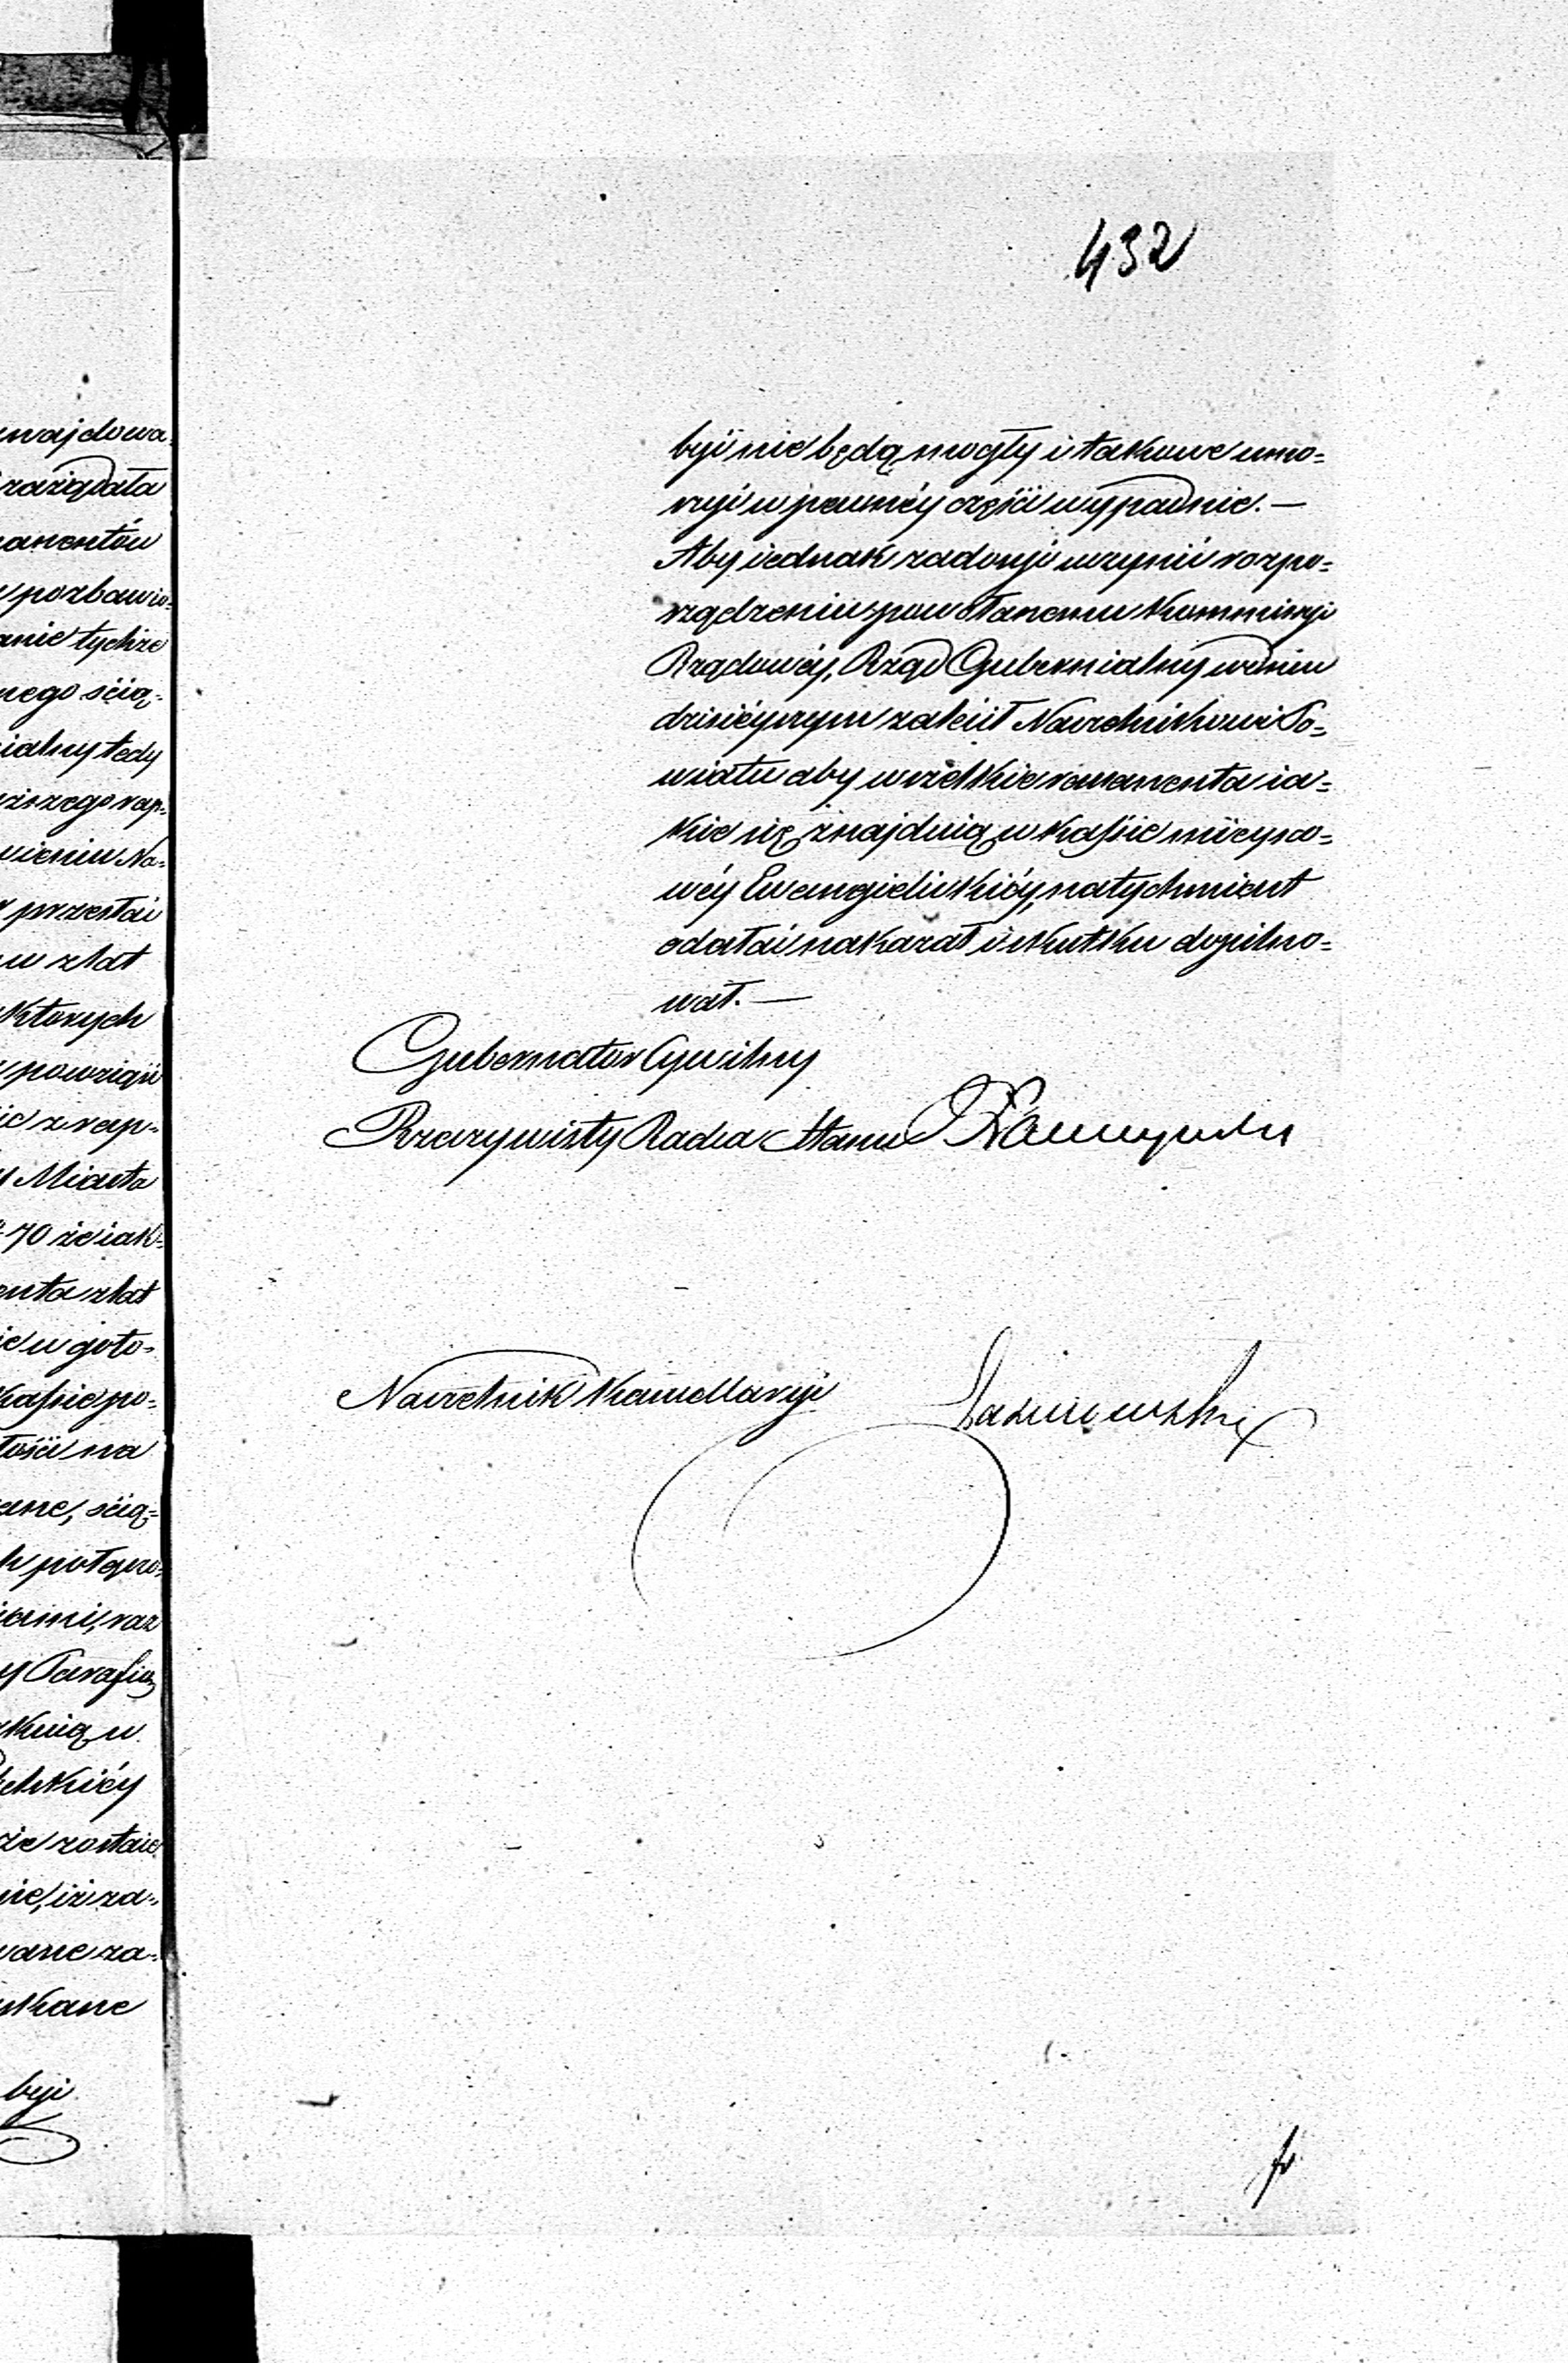 432
być nie będą mogły i takowe umo=
rzyć w pewnéy części wypadnie. —
Aby iednak zadosyć uczynić rozpo=
rządzeniu powołanemu Kommissyi
Rządowéy, Rząd Gubernialny w dniu
dzisiéyszym zalecił Naczelnikowi Po=
wiatu aby wszelkie remanenta ia=
kie się znajduią w Kassie mieysco=
wéy Ewangielickiéy, natychmiast
odesłać nakazał i skutku dopilno=
wał. —
Gubernator Cywilny
Rzeczywisty Radca Stanu
Naczelnik Kancellaryi
najdowa
zażądała
manentów
pozbawio=
anie tychże
nego ścią=
ialny tedy
ższego rap=
wieniu Na=
przesłać
w z lat
których
powziąć
ie z rap=
Miasta
70 że iak=
enta z lat
ie w goto=
Kassie po=
łości na
ane, ścią=
iami, raz
Parafii
zostaie
nie, iż za=
wane za=
skane
być